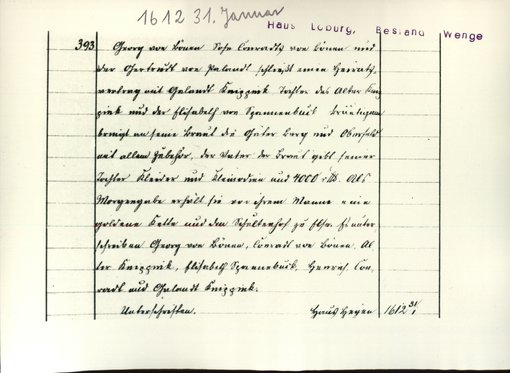 1612 31. Januar
Haus Loburg, Bestand Wenge
393
Georg von Bönen Sohn Conradts von Bönen und
der Gertrudt von Palandt schließt einen Heiraths-
vertrag mit Galandt Knippink Tochter des Alter Knip
pink und der Elisabeth von Spannenbuck. Bräutigam
bringt an seine Braut die Güter Berg und Oberfeld
mit allem Zubehör, der Vater der Braut gebt seiner
Tochter Kleider und Kleinodien und 4000 Als
Morgengabe erhält sie von ihrem Manne eine
goldene Kette und den Schultenhof zu Es unter
schreiben Georg von Bönen, Conradt von Bönen, Al
ter Knippink, Elisabeth Spannebuck, Henrich, Con
radt und Galandt Knippink.
Unterschriften. Haus Heyen 1612 31/1